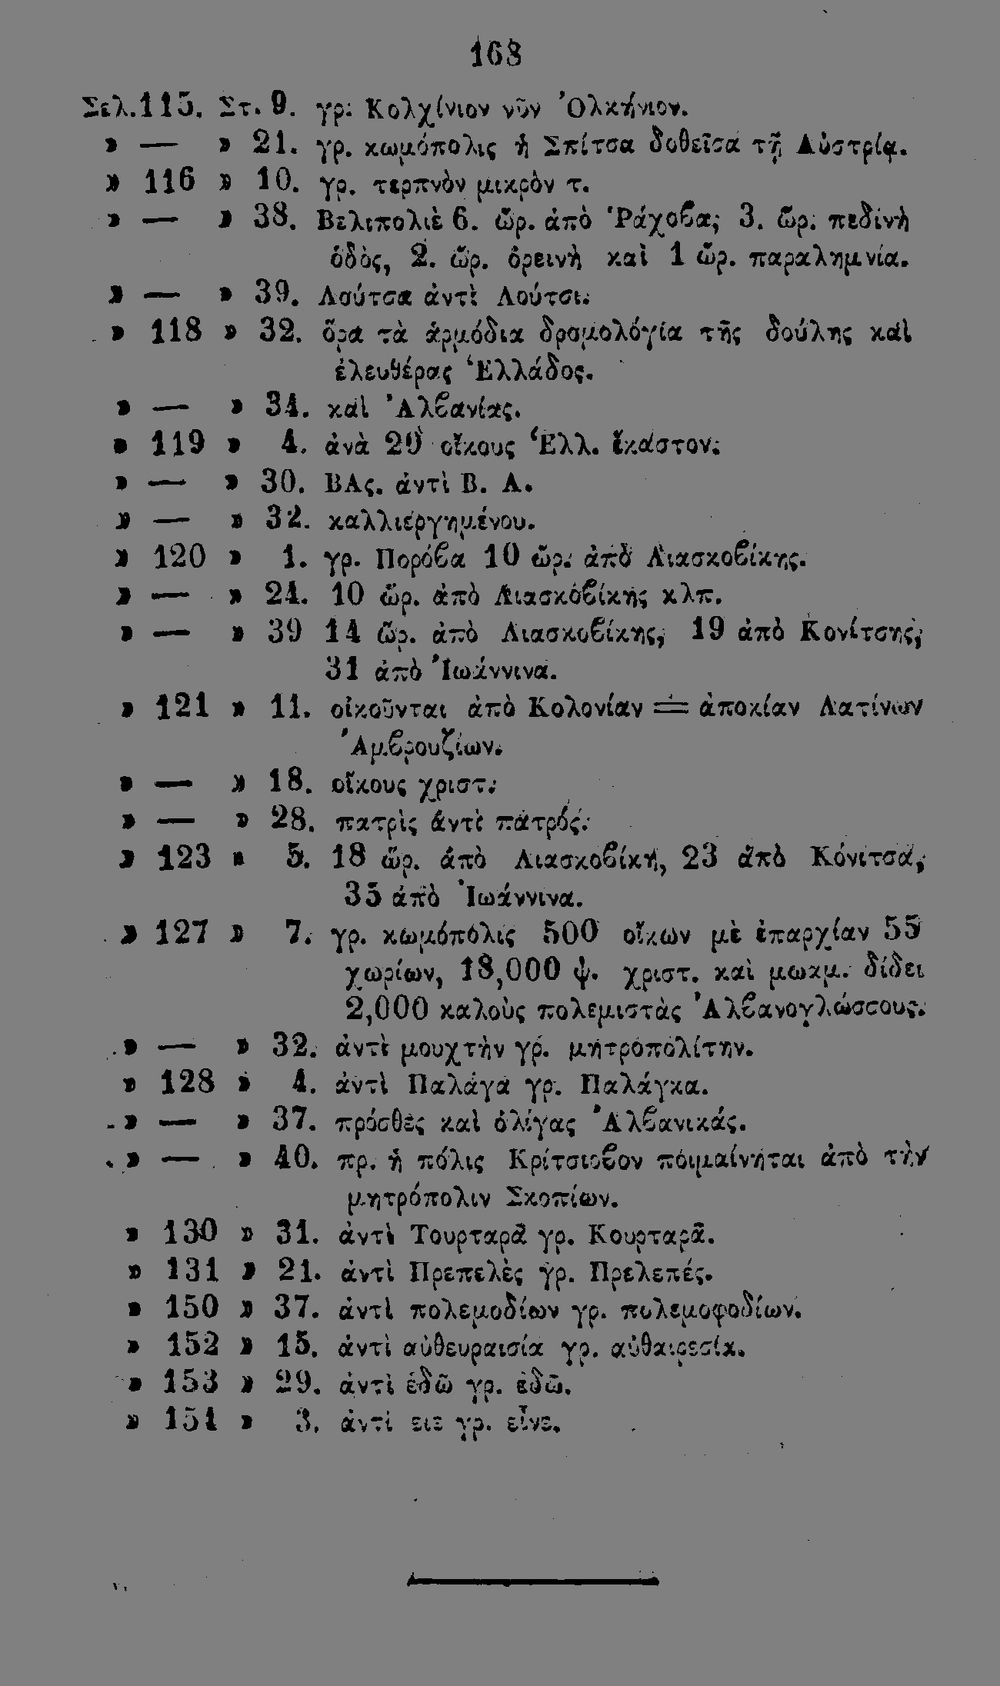 168
Σελ.115. Στ. 9. γρ. Κολχίνιον νῦν Ὀλκήνιον.
» — » 21. γρ. κωμόπολις ἡ Σπίτσα δοθεῖσα τῇ Αὐστρίᾳ.
» 116 » 10. γρ. τερπνὸν μικρὸν τ.
» — » 38. Βελιπολιὲ 6. ὧρ. ἀπὸ Ῥάχοβα, 3. ὧρ. πεδινὴ
ὁδὸς, 2. ὧρ. ὀρεινὴ καὶ 1 ὧρ. παραλημνία.
» — » 39. Λαύτσα ἀντὶ Λούτσι.
» 118 » 32. ὅρα τὰ ἁρμόδια δρομολόγία τῆς δούλης καὶ
ἐλευθέρας Ἑλλάδος.
» — » 34. καὶ Ἀλβανίας.
» 119 » 4. ἀνὰ 20 οἴκους Ἑλλ. ἕκαστον.
» — » 30. ΒΑς. ἀντὶ Β. Α.
» — » 32. καλλιεργημένου.
» 120 » 1. γρ. Πορόβα 10 ὧρ. ἀπὸ Λιασκοβίκης.
» — » 24. 10 ὧρ. ἀπὸ Λιασκοβίκης κλπ.
» — » 39 14 ὧρ. ἀπὸ Λιασκοβίκης, 19 ἀπὸ Κονίτσης,
31 ἀπὸ Ἰωάννινα.
» 121 » 11. οἰκοῦνται ἀπὸ Κολονίαν = ἀποκίαν Λατίνων
Ἀμβρουζίων.
» — » 18. οἴκους χριστ.
» — » 28. πατρὶς ἀντὶ πατρός.
» 123 » 5. 18 ὧρ. ἀπὸ Λιασκοβίκη, 23 ἀπὸ Κόνιτσα,
35 ἀπὸ Ἰωάννινα.
» 127 » 7. γρ. κωμόπολις 500 οἴκων μὲ ἐπαρχίαν 55
χωρίων, 18,000 ψ. χριστ. καὶ μωαμ. δίδει
2,000 καλοὺς πολεμιστὰς Ἀλβανογλώσσους.
» — » 32. ἀντὶ μουχτὴν γρ. μητροπολίτην.
» 128 » 4. ἀντὶ Παλάγα γρ. Παλάγκα.
» — » 37. πρόσθες καὶ ὀλίγας Ἀλβανικάς.
» — » 40. πρ. ἡ πόλις Κρίτσιοβον ποιμαίνηται ἀπὸ τὴν
μητρόπολιν Σκοπίων.
» 130 » 31. ἀντὶ Τουρταρᾶ γρ. Κουρταρᾶ.
» 131 » 21. ἀντὶ Πρεπελὲς γρ. Πρελεπές.
» 150 » 37. ἀντὶ πολεμοδίων γρ. πολεμοφοδίων.
» 152 » 15. ἀντὶ αὐθευραισία γρ. αὐθαιρεσία.
» 153 » 29. ἀντὶ ἐδῶ γρ. ἐδῶ.
» 154 » 3. ἀντὶ ειε γρ. εἶνε.